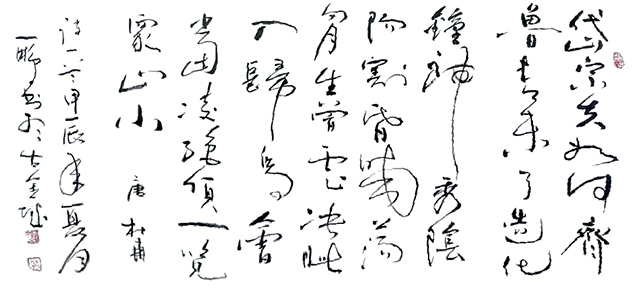 岱宗夫如何齊
魯青未了造化
鐘神秀陰
陽割昏曉蕩
胸生曾雲決眥
入歸鳥會
當凌絕頂一覽
眾山小 唐 杜甫
詩一首甲辰年夏月
一鵬書於古金城